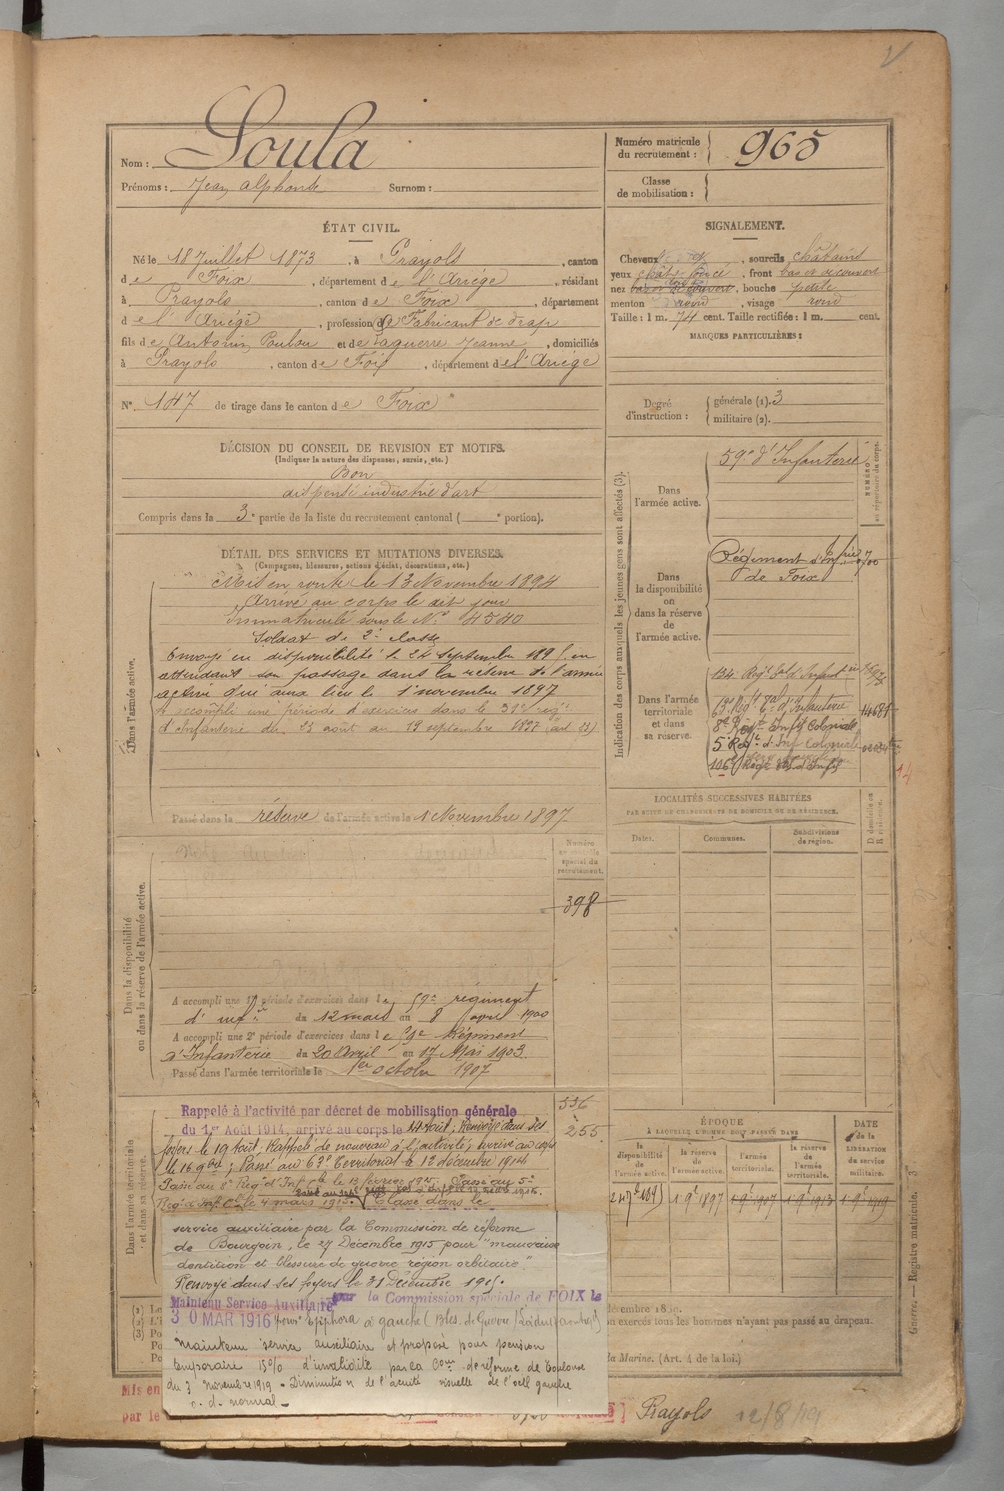 Nom : Soula
Prénoms : Jean Alphonse Surnom :
Numéro matricule du recrutement : 965
Classe de mobilisation :
ÉTAT CIVIL.
Né le 18 Juillet 1873, à Prayols, canton
de Foix, département de l'Ariége, résidant
à Prayols, canton de Foix, département
de l'Ariége, profession de Fabricant de drap
fils de Antonin et de Jeanne, domiciliés
à Prayols, canton de Foix, département de l'Ariége
N° 147 de tirage dans le canton de Foix
SIGNALEMENT.
Cheveux, sourcils châtains
yeux châts foncé, front bas et découvert
nez, bouche petite
menton rond, visage rond
Taille : 1 m. 74 cent. Taille rectifiée : 1 m. cent.
MARQUES PARTICULIÈRES :
Degré d'instruction : générale (1). 3
militaire (2).
DÉCISION DU CONSEIL DE REVISION ET MOTIFS.
(Indiquer la nature des dispenses, sursis, etc.)
Bon
dispensé industrie d'art
Compris dans la 3e partie de la liste du recrutement cantonal ( e portion).
DÉTAIL DES SERVICES ET MUTATIONS DIVERSES.
(Campagnes, blessures, actions d'éclat, décorations, etc.)
Dans l'armée active.
Mis en route le 13 Novembre 1894
Arrivé au corps le dit jour
Immatriculé sous le N° 4540
Soldat de 2e classe
Envoyé en disponibilité le 24 septembre 189 en
attendant son passage dans la réserve de l'armée
active qui aura lieu le 1er novembre 1897
A accompli une période d'exercices dans le
d'Infanterie du 23 août au 19 septembre 1897
Passé dans la réserve de l'armée active le 1 Novembre 1897
Indication des corps auxquels les jeunes gens sont affectés (3).
NUMÉRO au répertoire du corps.
Dans l'armée active.
59e d'Infanterie
Dans la disponibilité ou dans la réserve de l'armée active.
Régiment d'Infrie
de Foix
Dans l'armée territoriale et dans sa réserve.
134 Régt
63e Régt d'Infanterie
8e Régt Infie Coloniale
5e Régt d'Inf Coloniale
106 Régt
14
LOCALITÉS SUCCESSIVES HABITÉES
PAR SUITE DE CHANGEMENTS DE DOMICILE OU DE RÉSIDENCE.
Dates. Communes. Subdivisions de région. D domicile ou R résidence.
Dans la disponibilité ou dans la réserve de l'armée active.
Numéro au contrôle spécial du recrutement.
398
A accompli une 1re période d'exercices dans le 59e régiment
d'infrie du 12 mars au 8 avril 1900
A accompli une 2e période d'exercices dans le 59e Régiment
d'Infanterie du 20 Avril au 17 Mai 1903
Passé dans l'armée territoriale le 1er octobre 1907
Dans l'armée territoriale et dans sa réserve.
Rappelé à l'activité par décret de mobilisation générale
du 1er Août 1914, arrivé au corps le 14 Août, Renvoyé dans ses
foyers le 19 Août, Rappelé de nouveau à l'activité, arrivé au corps
le 16 9bre ; Passé au 63e Territorial le 12 décembre 1914
Passé au 8e Régt d'Inf Cle le 13 février 1915. Passé au 5e
Régt d'Infie Cle le 4 mars 1915. Classé dans le
255
service auxiliaire par la Commission de réforme
de Bourgoin, le 27 Décembre 1915 pour "mauvaise
dentition et blessure de guerre région orbitaire".
Renvoyé dans ses foyers le 31 Décembre 1915.
Maintenu Service Auxiliaire par la Commission spéciale de FOIX le
30 MAR 1916 pour Epiphora à gauche
Maintenu service auxiliaire et proposé pour pension
temporaire 15% d'invalidité par la Com de réforme de Toulouse
du 3 novembre 1919 - Diminution de l'acuité visuelle de l'oeil gauche
o. d. normal -
ÉPOQUE
À LAQUELLE L'HOMME DOIT PASSER DANS
DATE de la LIBÉRATION du service militaire.
la disponibilité de l'armée active.
la réserve de l'armée active.
l'armée territoriale.
la réserve de l'armée territoriale.
1 9e 1897 1 9e 1907 1 9e 1913 1 9e 1919
exon tous les hommes n'ayant pas passé au drapeau.
la Marine. (Art. 4 de la loi.)
Guerre. — Registre matricule. 3
Mis en
par le
Prayols 12/8/19